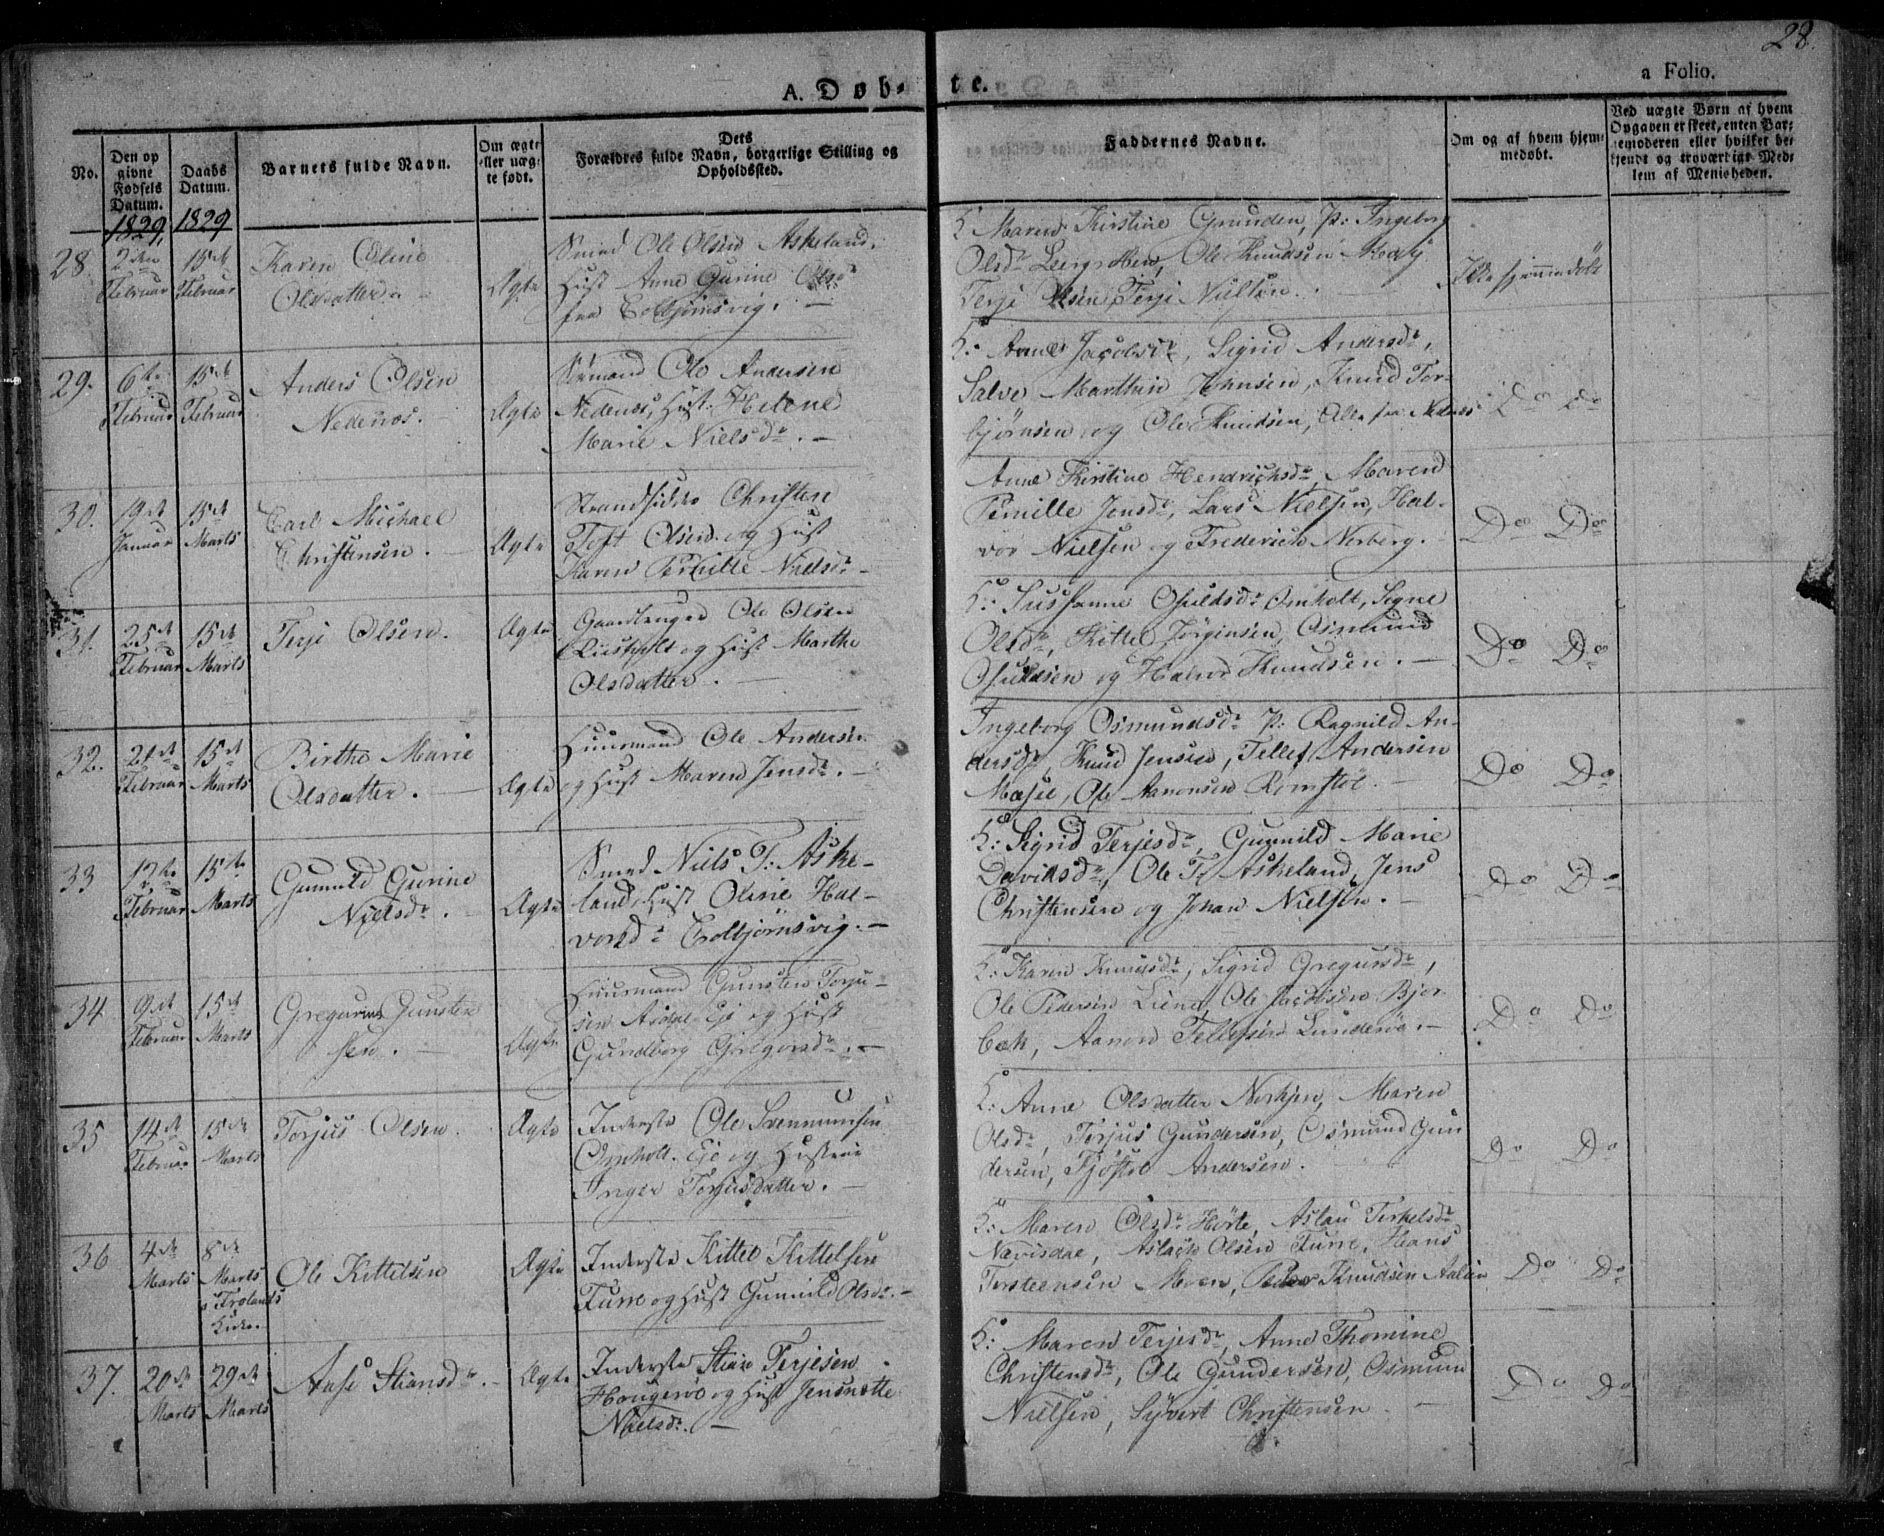 28.
a Folio.
A. Døb-
te.
No.
Den op
givne
Fødsels
Datum.
Daabs
Datum.
Barnets fulde Navn.
Om ægte
eller uæg-
te født.
Dets
Forældres fulde Navn, borgerlige Stilling og
Opholdssted.
Faddernes Navne.
Om og af hvem hjem-
medøbt.
Ved uægte Børn af hvem
Opgaven er skeet, enten Bar-
nemoderen eller hvilket be-
kjendt og troværdigt Med-
lem af Menigheden.
1829, 1829
28.
2den
Februar
15de
Februar
Karen Oline
Olsdatter.
Ægte
Smed Ole Olsen Askeland,
Hust Anne Gurine
fra Colbjørnsvig.
K Maren Kirstine Grunden, P: Ingeborg
Olsdr, Ole Knudsen
Terje Olsen, Terje Nielsen.
Ikke hjemmedøbt
29.
6te
Februar
15de
Februar
Anders Olsen
Nedenæs.
Ægte
Sømand Ole Andersen
Nedenæs, Hust: Helene
Marie Nielsdr.
K: Jacobsdr, Sigrid Andersdr,
Salve Marthin Hansen, Knud Tor-
bjørnsen og Ole Knudsen, Alle fra Nedenæs
Do Do
30.
19de
Januar
15de
Marts
Carl Michael
Christensen.
Ægte
Strandsidder Christen
Toft Olsen og Hust
Karen Pernille Nielsdr
Anne Kirstine Hendrichsdr, Maren
Pernille Jensdr, Lars Nielsen, Hal-
vor Nielsen og Frederich Norberg.
Do Do
31.
25de
Februar
15de
Marts
Terje Olsen.
Ægte
Gaardbruger Ole Olsen
og Hust Marthe
Olsdatter.
K: Sussanne Osuldsdr Omholt, Signe
Olsdr, Kittel Jørgensen, Osmund
Osuldsen og Halvor Knudsen.
Do Do
32.
21de
Februar
15de
Marts
Birthe Marie
Olsdatter.
Ægte
Huusmand Ole Andersen
og Hust Maren Jensdr.
Ingeborg Osmundsdr P: Ragnild An-
dersdr, Knud Jensen, Tellef Andersen
Ole Aanonsen Romstøl.
Do Do
33
12te
Februar
15de
Marts
Gunnild Gurine
Nielsdr.
Ægte
Smed Niels T: Aske-
land, Hust Oline Hal-
vorsdr Colbjørnsvig.
K: Sigrid Terjesdr, Gunnild Marie
Davidsdr, Ole T. Askeland, Jens
Christensen og Johan Nielsen.
Do Do
34
9de
Februar
15de
Marts
Gregurius Gunsten
sen.
Ægte
Huusmand Gunsten Torju-
sen Asdal Eje og Hust
Gundborg Gregorsdr.
K: Karen Knudsdr, Sigrid Gregursdr,
Ole Pedersen Liene, Ole Jacobsen Bjor-
bæk, Aanon Tellefsen Lunderøe.
Do Do
35
14de
Februar
15de
Marts
Torjus Olsen.
Ægte
Inderste Ole Svennumsen
Omholt Eje og Hustrue
Inger Torjusdatter.
K: Anne Olsdatter Maren
Olsdr, Torjus Gundersen, Osmund Gun
dersen, Tjøstol Andersen.
Do Do
36
4de
Marts
8de
Marts
i Frolands
Kirke.
Ole Kittelsen
Ægte
Inderste Kittel Kittelsen
Furre og Hust Gunnild Olsdr.
K: Maren Olsdr Hørte, Aslau Terkelsdr
Nævisdal, Aslach Olsen Furre, Hans
Tersteensen Moren, Peder Knudsen
Do Do
37.
20de
Marts
29de
Marts
Aase Stiansdr.
Ægte
Inderste Stian Terjesen
Haugerøe og Hust Jensnette
Nielsdr.
K: Maren Terjesdr, Anne Thomine
Christensdr, Ole Gundersen, Osmun
Nielsen, Syvert Christensen
Do Do